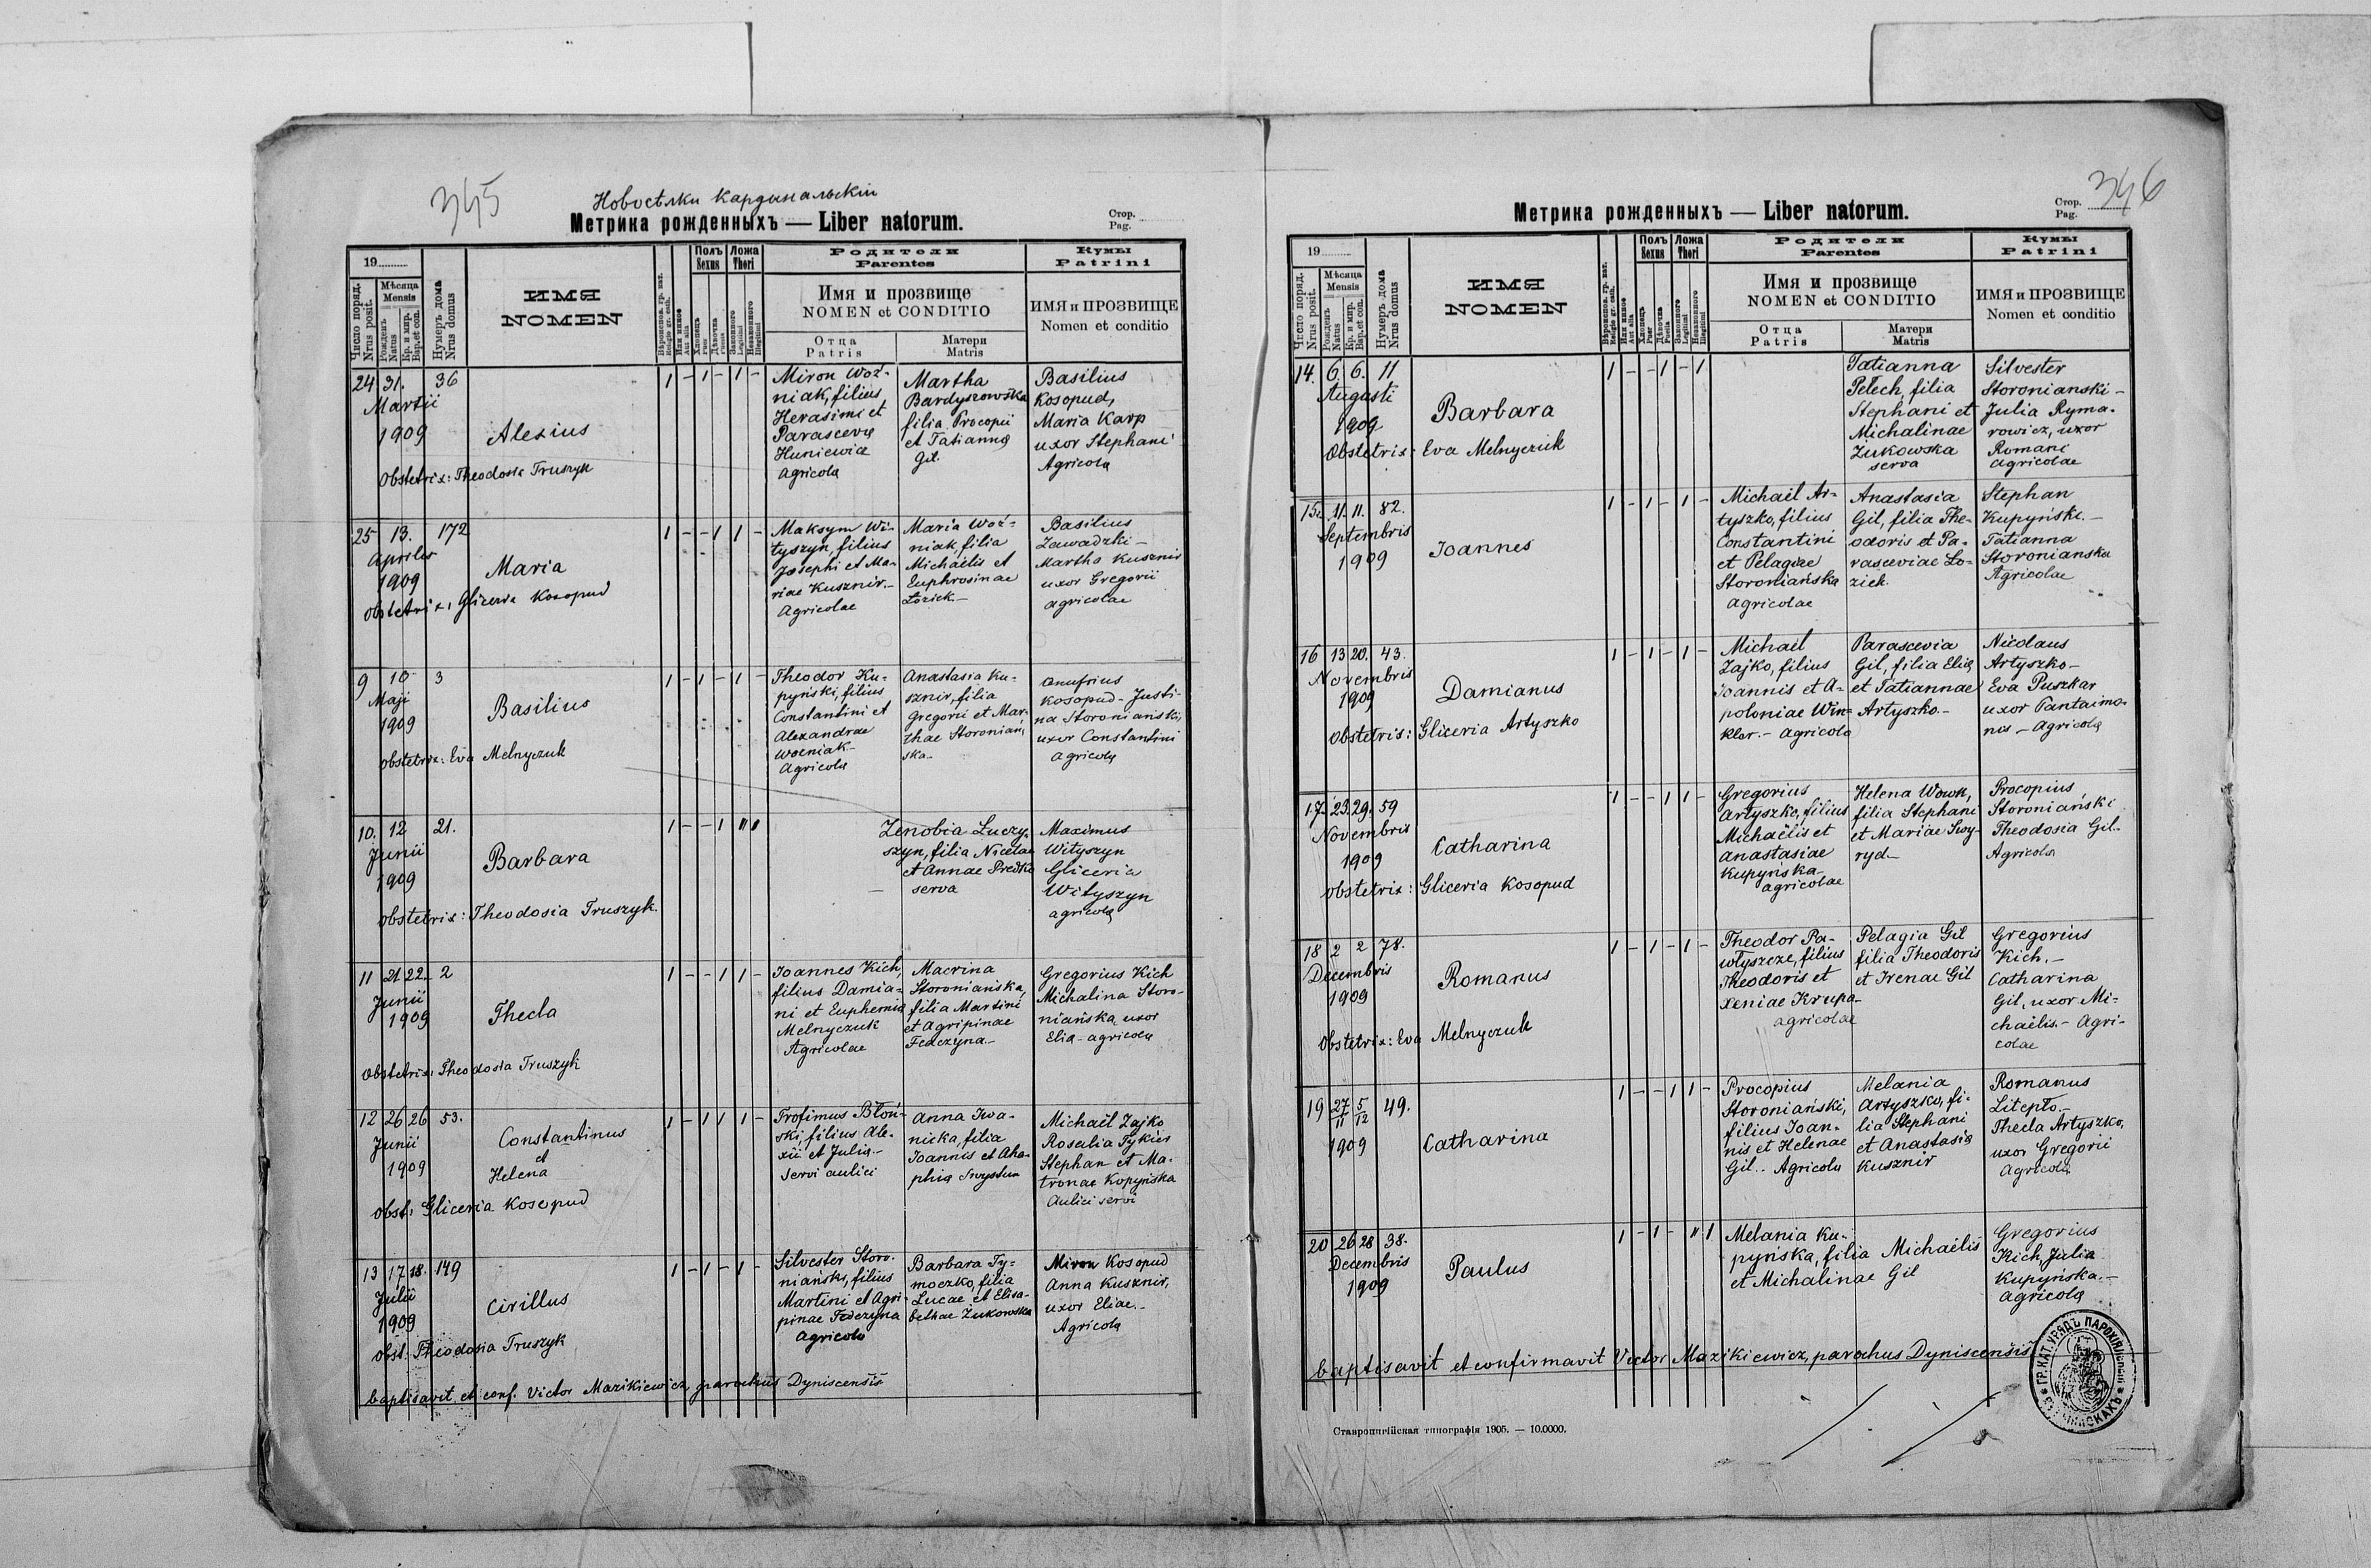 345
Новосѣлки кардинальскіи
Метрика рожденныхъ — Liber natorum.
Стор.
Pag.
19
Число поряд.
Nrus posit.
Мѣсяца
Mensis
Рожденъ
Natus
Кр. и мир.
Bap. et con.
Нумеръ дома
Nrus domus
ИМЯ
NOMEN
Вѣроиспов. гр. кат.
Religio gr. cath.
Или инное
Aut alia
Полъ
Sexus
Хлопецъ
Puer
Дѣвочка
Puella
Ложа
Thori
Законного
Legitimi
Незаконного
Illegitimi
Родители
Parentes
Имя и прозвище
NOMEN et CONDITIO
Отца
Patris
Матери
Matris
Кумы
Patrini
ИМЯ и ПРОЗВИЩЕ
Nomen et conditio
24 31. 36
Martii
1909
Alexius
Obstetrix: Theodosia Truszyk
1 - 1 - 1 -
Miron Woź-
niak, filius
Herasimi et
Parascevę
Huniewicz
agricola
Martha
Bardyszowska
filia Procopii
et Tatiannę
Gil.
Basilius
Kosopud,
Maria Karp
uxor Stephani
Agricolę
25 13. 172
Aprilis
1909
Maria
Obstetrix: Gliceria Kosopud
1 - - 1 1 -
Maksym Wi-
tyszyn, filius
Josephi et Ma-
riae Kusznir.-
Agricolae
Maria Woź-
niak, filia
Michaëlis et
Euphrosinae
Łozick.-
Basilius
Zawadzki -
Martha Kusznir
uxor Gregorii
agricolae
9 10 3
Maji
1909
Basilius
Obstetrix: Eva Melnyczuk
1 - 1 - 1 -
Theodor Ku-
pyński, filius
Constantini et
Alexandrae
Woźniak-
Agricolę
Anastasia Ku-
sznir, filia
Gregorii et Mar-
thae Storoniań-
ska-
Onufrius
Kosopud - Justi-
na Storoniański,
uxor Constantini
agricolę
10. 12 21.
Junii
1909
Barbara
Obstetrix: Theodosia Truszyk.
1 - - 1 " 1
Zenobia Łuczy-
szyn, filia Nicetae
et Annae Fredko
serva
Maximus
Wityszyn
Gliceria
Wityszyn
agricolę
11 21 22 2
Junii
1909
Thecla
Obstetrix: Theodosia Truszyk
1 - - 1 1 -
Joannes Kich,
filius Damia-
ni et Euphemię
Melnyczuk
Agricolae
Macrina
Storoniańska,
filia Martini
et Agripinae
Fedczyna.-
Gregorius Kich
Michalina Storo-
niańska, uxor
Elię - agricolę
12 26 26 53.
Junii
1909
Constantinus
et
Helena
Obst: Gliceria Kosopud
1 - 1 1 1 -
Trofimus Błoń-
ski, filius Ale-
xii et Julię.-
Servi aulici
Anna Iwa-
nicka, filia
Joannis et Aha-
phię Swystun
Michaël Zajko
Rosalia Tykier
Stephan et Ma-
tronae Kopyńska
Aulici servi
13 17 18. 149
Julii
1909
Cirillus
Obst: Theodosia Truszyk
1 - 1 - 1 -
Silvester Storo-
niański, filius
Martini et Agri-
pinae Fedczyna
Agricolę
Barbara Ty-
moczko, filia
Lucae et Elisa-
bethae Żukowska
Miron Kosopud
Anna Kusznir,
uxor Eliae.-
Agricolę
baptisavit et conf. Victor Mazikiewicz, parochus Dyniscensis
346
Метрика рожденныхъ — Liber natorum.
Стор.
Pag.
19
Число поряд.
Nrus posit.
Мѣсяца
Mensis
Рожденъ
Natus
Кр. и мир.
Bap. et con.
Нумеръ дома
Nrus domus
ИМЯ
NOMEN
Вѣроиспов. гр. кат.
Religio gr. cath.
Или инное
Aut alia
Полъ
Sexus
Хлопецъ
Puer
Дѣвочка
Puella
Ложа
Thori
Законного
Legitimi
Незаконного
Illegitimi
Родители
Parentes
Имя и прозвище
NOMEN et CONDITIO
Отца
Patris
Матери
Matris
Кумы
Patrini
ИМЯ и ПРОЗВИЩЕ
Nomen et conditio
14. 6. 6. 11
Augusti
1909
Barbara
Obstetrix: Eva Melnyczuk
1 - - 1 - 1
Tatianna
Pełech, filia
Stephani et
Michalinae
Żukowska
serva
Silvester
Storonianski -
Julia Ryma-
rowicz, uxor
Romani
agricolae
15. 11. 11. 82.
Septembris
1909
Joannes
1 - 1 - 1 -
Michaël Ar-
tyszko, filius
Constantini
et Pelagiae
Storoniańska
agricolae
Anastasia
Gil, filia The-
odoris et Pa-
rasceviae Ło-
zick
Stephan
Kupyński.-
Tatianna
Storonianska
Agricolae
16 13 20. 43.
Novembris
1909
Damianus
Obstetrix: Gliceria Artyszko
1 - 1 - 1 -
Michaël
Zajko, filius
Joannis et A-
poloniae Win-
kler.- agricolę
Parascevia
Gil, filia Elię
et Tatiannae
Artyszko.-
Nicolaus
Artyszko-
Eva Puszkar
uxor Pantaimo-
nis - Agricolę
17. 23. 29. 59
Novembris
1909
Catharina
Obstetrix: Gliceria Kosopud
1 - - 1 1 -
Gregorius
Artyszko, filius
Michaëlis et
Anastasiae
Kupyńska-
agricolae
Helena Wowk,
filia Stephani
et Mariae Swy-
ryd-
Procopius
Storoniański
Theodosia Gil..
Agricolę
18 2 2 78.
Decembris
1909
Romanus
Obstetrix: Eva Melnyczuk
1 - 1 - 1 -
Theodor Pa-
włyszcze, filius
Theodoris et
Xeniae Krupa-
agricolae
Pelagia Gil
filia Theodoris
et Irenae Gil
Gregorius
Kich.-
Catharina
Gil, uxor Mi-
chaëlis.- Agri-
colae
19 27/11 5/12 49.
1909
Catharina
1 - - 1 1 -
Procopius
Storoniański,
filius Joan-
nis et Helenae
Gil.. Agricolę
Melania
Artyszko, fi-
lia Stephani
et Anastasię
Kusznir
Romanus
Litepło.-
Thecla Artyszko,
uxor Gregorii
Agricolę
20 26 28 38.
Decembris
1909
Paulus
1 - 1 - " 1
Melania Ku-
pyńska, filia Michaëlis
et Michalinae Gil
Gregorius
Kich, Julia
Kupyńska.-
agricolę
baptisavit et confirmavit Victor Mazikiewicz, parochus Dyniscensis
ГР. КАТ. УРЯДЪ ПАРОХІЯЛЬНЫЙ
Ставропигійская типографія 1905. — 10.0000.